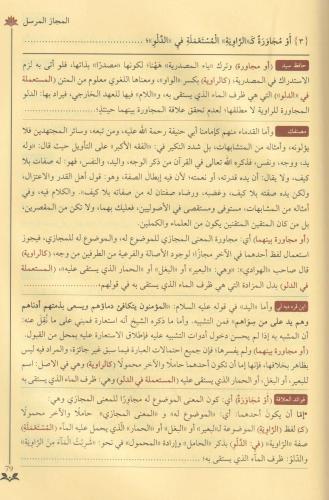 المجاز المرسل
{٣} أَوْ مُجَاوَرَةً كَـ«الرَّاوِيَةِ» الْمُسْتَعْمَلَةِ فِي «الدَّلْوِ»؛
حافظ سيد (أو مجاورة) وترك «ياء المصدرية» هنا؛ لكونها «مصدرًا» بذاتها، فلو أتى به لزم
الاستدراك في المصدرية، (كالراوية) بكسر «الواو»، ومعناها اللغوي معلوم من المتن (المستعملة
في «الدلو») التي هي ظرف الماء الذي يستقى به، و«اللام» فيها للعهد الخارجي، فيراد بها: الدلو
المجاورة للراوية لا مطلقها؛ لعدم تحقق علاقة المجاورة بينهما حينئذ.
مصنفك وأما القدماء منهم كإمامنا أبي حنيفة رحمة الله عليه، ومن تبعه، وسائر المجتهدين فلا
يؤولونه، أو أمثاله من المتشابهات، بل شدد النكير في: «الفقه الأكبر» على التأويل حيث قال: «وله
يد، ووجه، ونفس، فذكره الله تعالى في القرآن من ذكر الوجه، واليد، والنفس، فهو: له صفات بلا
كيف، ولا يقال: أن يده قدرته، أو نعمته؛ لأن فيه إبطال الصفة، وهو: قول أهل القدر، والاعتزال،
ولكن يده صفته بلا كيف، وغضبه، ورضاه صفتان له من صفاته بلا كيف». والكلام فيه، وفي
أمثاله من المتشابهات، مستوفى ومستقصى في الأصوليين، فعليك بهما، ولا تكن من المقصرين،
بل من كان المتقين المتقنين يكون من العلماء والكملين.
(أو مجاورة بينهما) أي: مجاورة المعنى المجازي للموضوع له، والموضوع له للمجازي، فيجوز
استعمال لفظ أحدهما في الآخر مجازًا؛ لوجود الأصالة والفرعية من الطرفين من وجه، (كالراوية)
قال صاحب «الهوادي»: وهي: «البعير» أو «البغل» أو «الحمار الذي يستقى عليه»، (المستعملة في
الدلو) بدل المزادة التي هي ظرف الماء الذي يستقى به في قوله.
ابن قره تپه لي وأما «اليد» في قوله عليه السلام: «المؤمنون يتكافئ دماؤهم ويسعى بذمتهم أدناهم
وهم يد على من سواهم» فمن التشبيه. وأما ما ذكره الشيخ أنه استعارة فمبني على ما نُقل عنه:
أن المشبه به إذا لم يحسن دخول أدوات التشبيه عليه فإطلاق الاستعارة عليه بمحل من القبول.
(أو مجاورة بينهما) ولم يفسرها؛ فإن جميع احتمالات العبارة فيما سبق غير جائزة، والمراد فيه ليس
بخلافها، فإنها إما أن تكون أحدهما حاملًا والآخر محمولًا (كالراوية) وهي في الأصل: اسم
للبعير، أو البغل، أو الحمار الذي يستقى عليه (المستعملة في الدلو) وهي: ظرف الماء الذي يستقى به
فرائد العلاقة (أَوْ مُجَاوَرَةً) أي: كون المعنى الموضوع له مجاورًا للمعنى المجازي وهي:
*إمّا أن يكون أحدهما: أي: «الموضوع له» و «المعنى المجازي» حاملًا والآخر محمولًا
(كـ) لفظ (الرَّاوِيَةِ) الموضوعة لـ«البعير» أو «البغل» أو «الحمار» الّذي يحمل عليه الماء (الْمُسْتَعْمَلَةِ)
صفة «الرَّاوِيَةِ» (في: الدَّلْوِ) بذكر «الحامل» وإرادة «المحمول» في نحو: «شَرِبْتُ الْمَاءَ مِنَ الرَّاوِيَةِ»
والدّلوُ: ظرف الماء الّذي يستقى به.
79